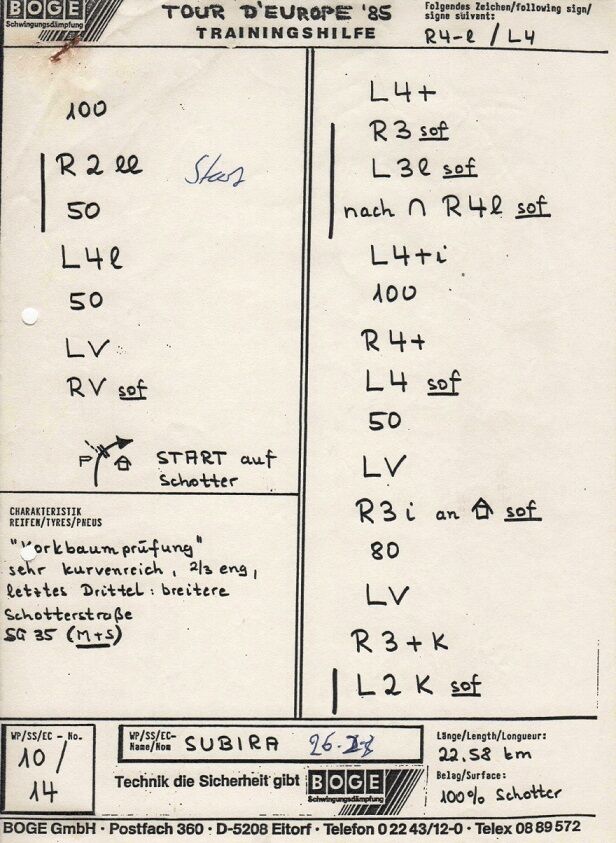 BOGE
Schwingungsdämpfung
TOUR D'EUROPE '85
TRAININGSHILFE
Folgendes Zeichen/following sign/
signe suivent:
R4-l / L4
100
R2 ll
50
L4l
50
LV
RV sof
P START auf
Schotter
CHARAKTERISTIK
REIFEN/TYRES/PNEUS
"Korkbaumprüfung"
sehr kurvenreich, 2/3 eng,
letztes Drittel: breitere
Schotterstraße
SG 35 (M+S)
L4+
R3 sof
L3l sof
nach ∩ R4l sof
L4+i
100
R4+
L4 sof
50
LV
R3i an sof
80
LV
R3+K
L2 K sof
WP/SS/EC - No.
10/
14
WP/SS/EC-
Name/Nom SUBIRA
Technik die Sicherheit gibt BOGE
Schwingungsdämpfung
Länge/Length/Longueur:
22.58 km
Belag/Surface:
100% Schotter
BOGE GmbH · Postfach 360 · D-5208 Eitorf · Telefon 0 22 43/12-0 · Telex 08 89 572